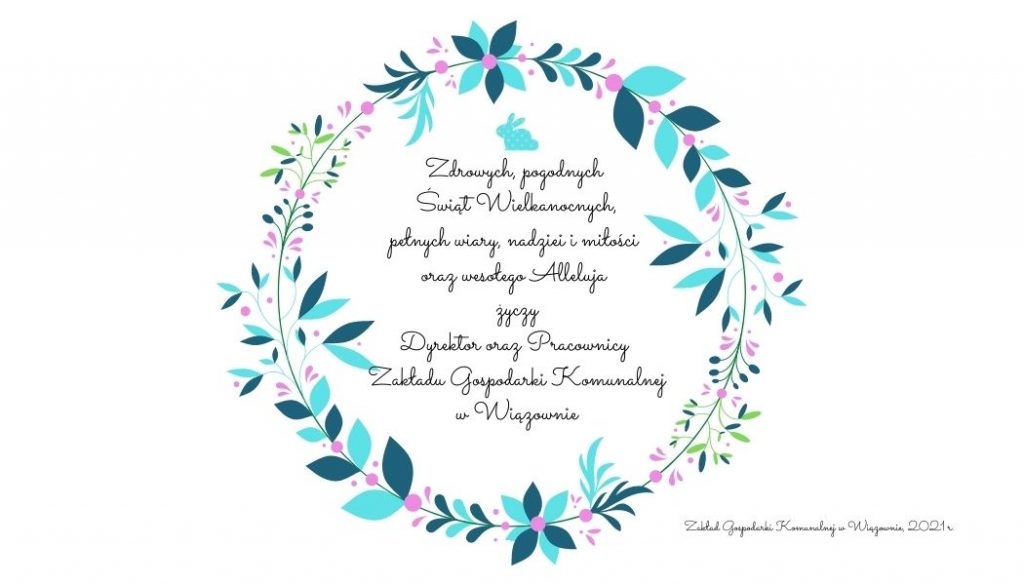 Zdrowych, pogodnych
Świąt Wielkanocnych,
pełnych wiary, nadziei i miłości
oraz wesołego Alleluja
życzy
Dyrektor oraz Pracownicy
Zakładu Gospodarki Komunalnej
w Wiązownie
Zakład Gospodarki Komunalnej w Wiązownie, 2021 r.